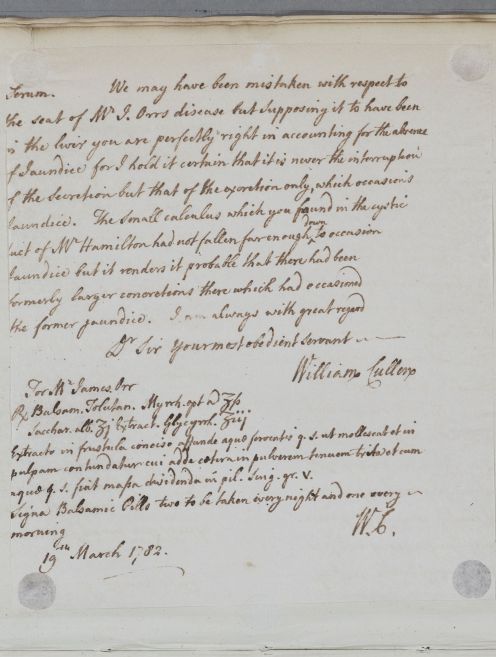 Serum. We may have been mistaken with respect to
the seat of Mr J. Orrs disease but supposing it to have been
in the liver you are perfectly right in accounting for the absence
of Jaundice for I hold it certain that it is never the interruption
of the Secretion but that of the excretion only, which occasions
Jaundice. The small calculus which you found in the cystic
duct of Mr Hamilton had not fallen far enough down to occasion
Jaundice but it renders it probable that there had been
formerly larger concretions there which had occasioned
the former jaundice. I am always with great regard
Dr Sir Your most obedient servant
William Cullen
For Mr James Orr
Rx Balsam. Tolutan. Myrrh. opt ad ʒſs
Sacchar. alb. ʒj Extract. Glycyrrh. ʒiij
Extracto in frustula conciso affunde aquæ ferventis q. s. ut mollescat et in
pulpam contundatur cui adde cetera in pulverem tenuem trita et cum
aquæ q. s. fiat massa dividenda in pil. sing. gr. V.
Signa Balsamic Pills two to be taken every night and one every
morning
W. C.
19th March 1782.